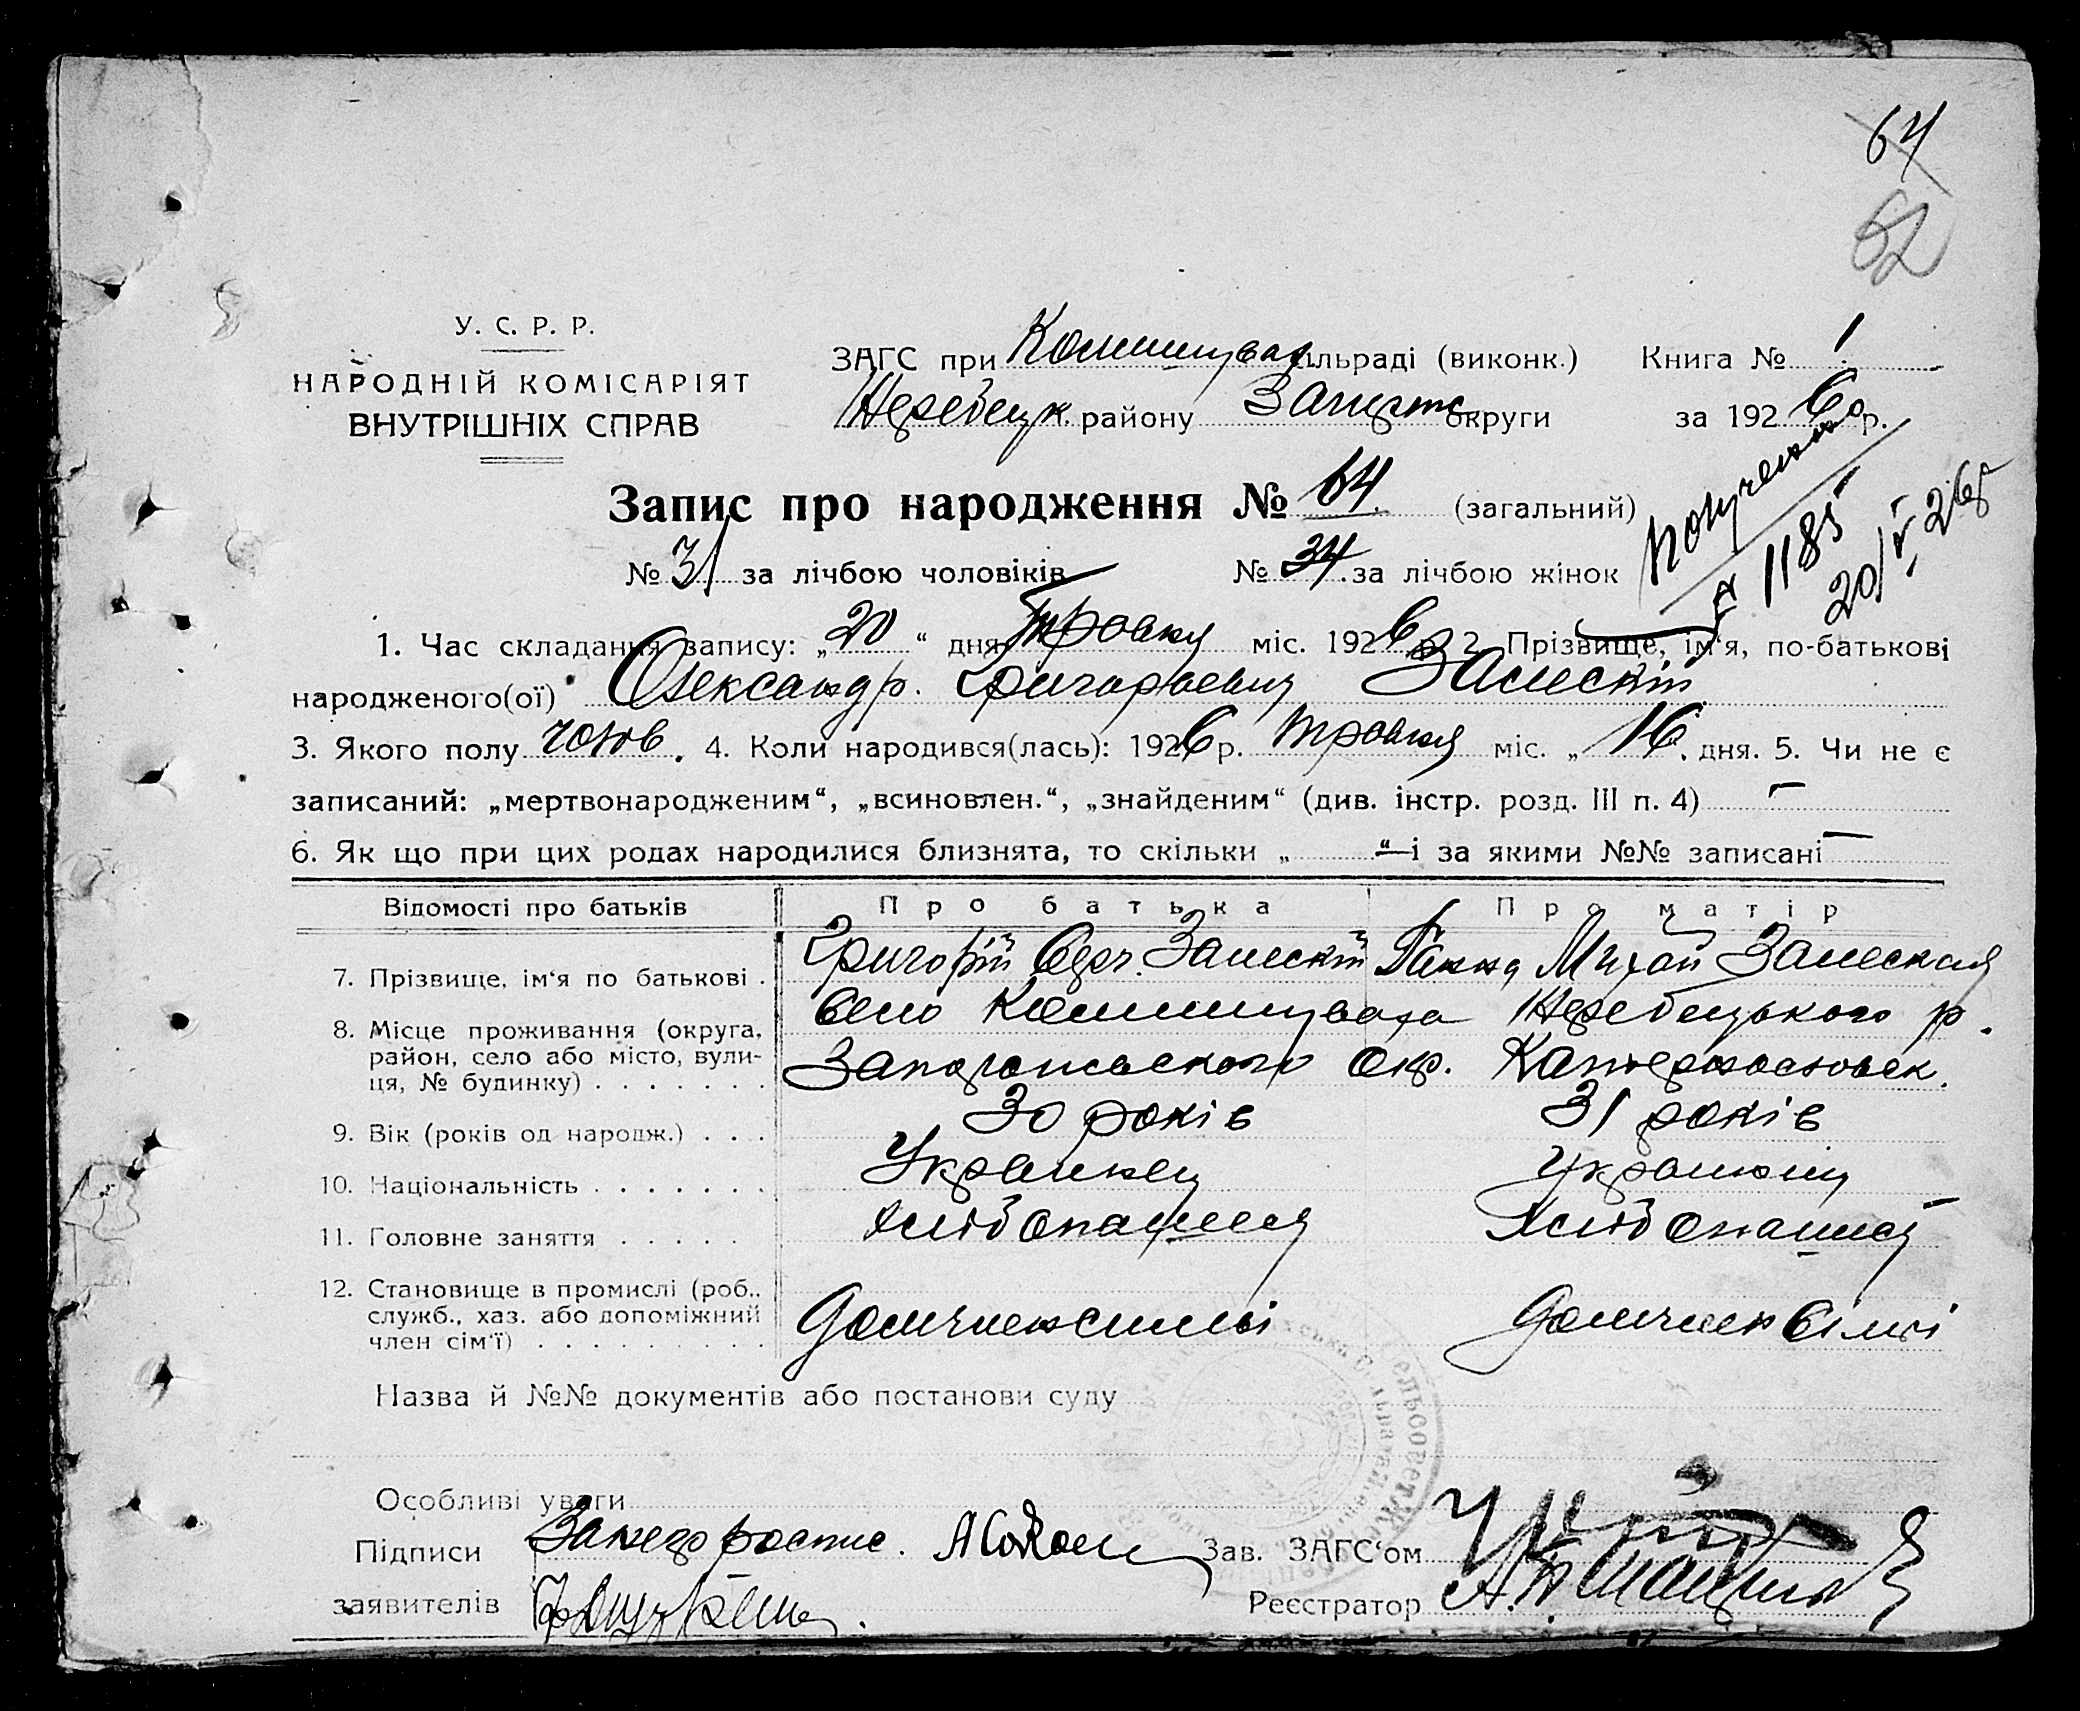 64
62
У. С. Р. Р.
НАРОДНІЙ КОМІСАРІЯТ
ВНУТРІШНІХ СПРАВ
ЗАГС при Комишувах сільраді (виконк.) Книга № 1
району Запорізь округи за 1926 р.
Запис про народження № 64. (загальний)
№ 31 за лічбою чоловіків № 34. за лічбою жінок
1185
20/V-26р
1. Час складання запису: „20“ дня травня міс. 1926 р. 2. Прізвище, ім'я, по-батькові
народженого(ої) Олександр. Григорович Залескій
3. Якого полу чолов. 4. Коли народився(лась): 1926 р. травня міс. „16. дня. 5. Чи не є
записаний: „мертвонародженим“, „всиновлен.“, „знайденим“ (див. інстр. розд. III п. 4) –
6. Як що при цих родах народилися близнята, то скільки „ “ — і за якими №№ записані —
Відомості про батьків Про батька Про матір
7. Прізвище, ім'я по батькові . Григорій Залескій Ганна Михай Залеская
8. Місце проживання (округа, район, село або місто, вулиця, № будинку) . . . . . . . село Комишуваха р.
Запорожського Окр.
9. Вік (років од народж.) . . . 30 років 31 років
10. Національність . . . . . . . Украинец Украинець
11. Головне заняття . . . . . Хлібопашец Хлібопашец
12. Становище в промислі (роб., служб., хаз. або допоміжний член сім'ї) . . . . . . . . . сімьі
Назва й №№ документів або постанови суду
Особливі уваги
Підписи Зав. ЗАГС'ом
заявителів Реєстратор